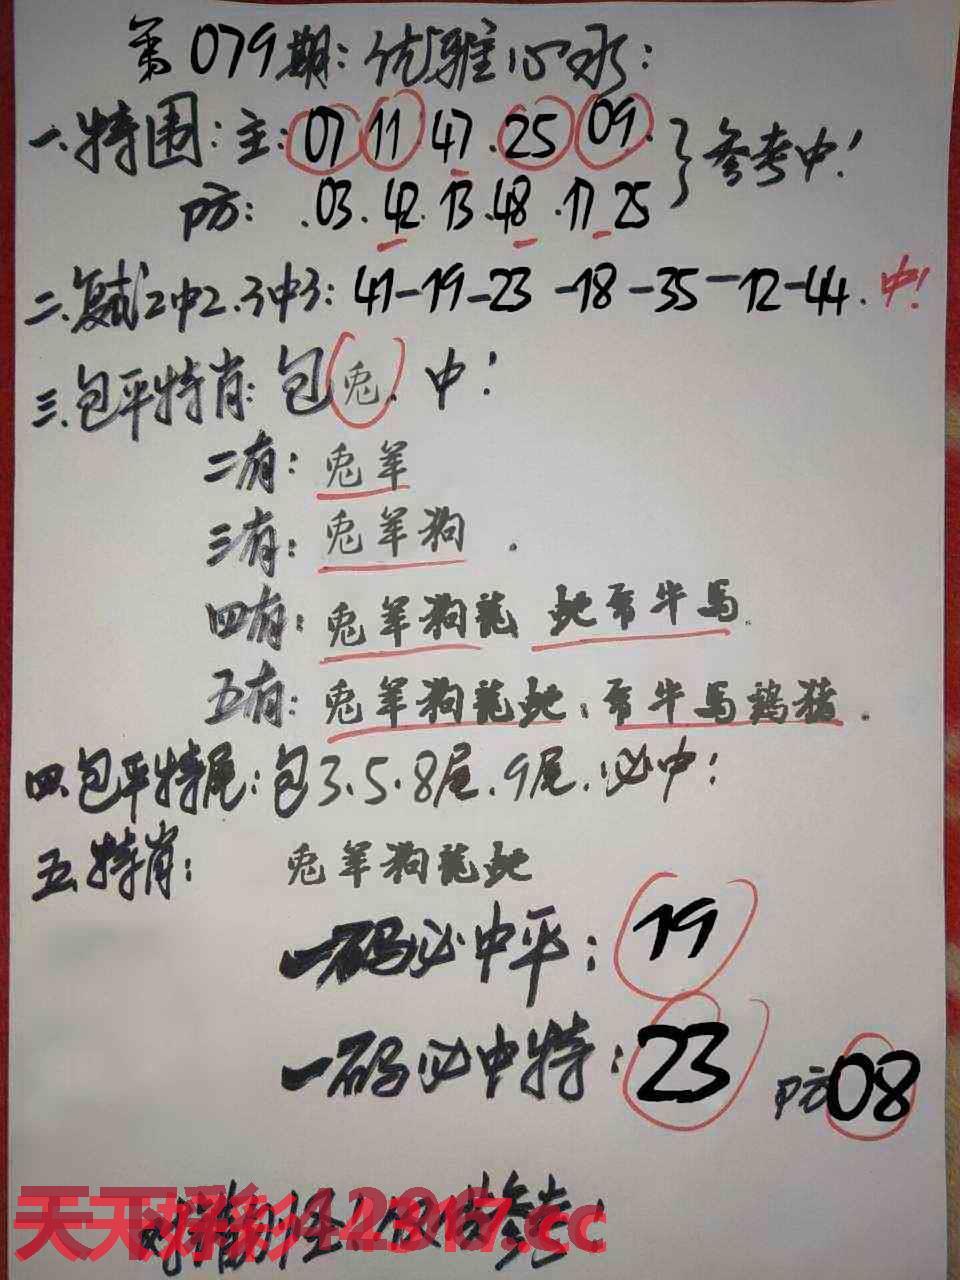 第079期:优雅心水:
一.特围:主:07 11.47.25 09.
防:.03.42.13.48.17 25
}参考中!
二.复试2中2.3中3:41-19-23-18-35-12-44.中!
三.包平特肖:包兔.中!
二有:兔羊
三有:兔羊狗.
四有:兔羊狗龙 蛇鼠牛马.
五有:兔羊狗龙蛇:鼠牛马鸡猪.
四.包平特尾:包3.5.8尾.9尾.必中!
五.特肖:兔羊狗龙蛇
一码必中平:19
一码必中特:23 防08
天天彩 .cc